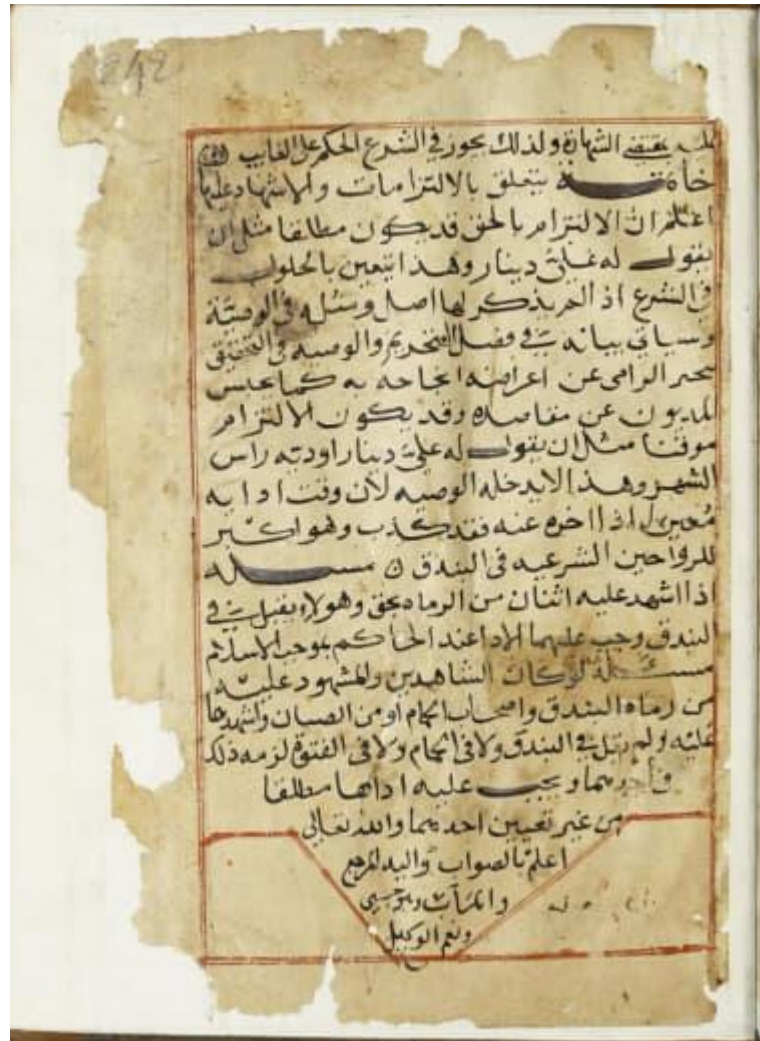 242
عليه بمقتضى الشهادة ولذلك يجوز في الشرع الحكم على الغايب
خاتمة يتعلق بالالتزامات والاشهاد عليها
اعلم ان الالتزام بالحق قد يكون مطلقا مثل ان
يقول له علي دينار وهذا يتعين بالحلول
في الشرع اذ الم يذكر لها اصل وسئله في الوصية
وسياتي بيانه في فصل التحريم والوصيه في التحقيق
الرامى عن اغراضه كما يحبس
المديون عن مقاصده وقد يكون الالتزام
موقتا مثل ان يقول له علي دينار اوديه راس
الشهر وهذا لا يدخله الوصيه لان وقت ادايه
معين اذا اخره عنه فقد كذب وهو اكبر
الشرعيه في البندق مسئله
اذا اشهد عليه اثنان من الرماه بحق وهو لا يقبل في
البندق وجب عليهما الادا عند الحاكم بموجب الاسلام
مسئلة لو كان الشاهدين والمشهود عليه
من رماه البندق واصحاب الحمام او من الصبيان واشهدها
عليه ولم يقل في البندق ولا في الحمام ولا في الفتوة لزمه ذلك
ويجب عليه اداها مطلقا
من غير تعيين احديهما والله تعالى
اعلم بالصواب واليه المرجع
والمآب وهو حسبي
ونعم الوكيل